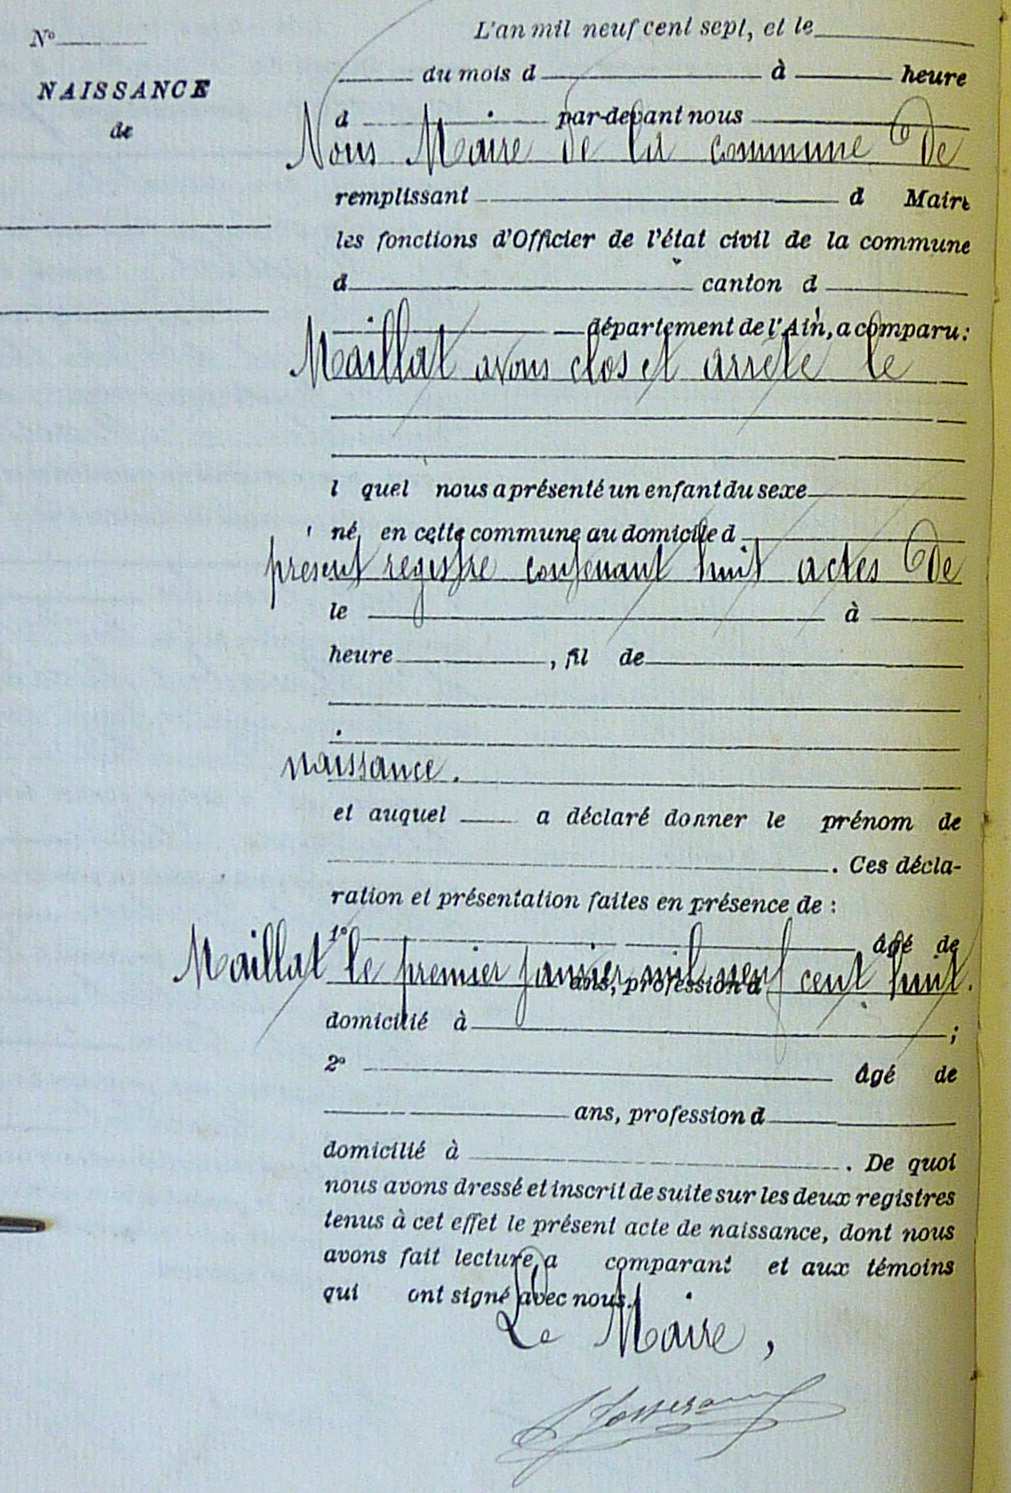 N°
NAISSANCE
de
L'an mil neuf cent sept, et le
du mois d à heure
d par-devant nous
Nous Maire de la commune de
remplissant d Maire
les fonctions d'Officier de l'état civil de la commune
d canton d
département de l'Ain, a comparu :
Maillat avons clos et arrêté le
l quel nous a présenté un enfant du sexe
né en cette commune au domicile d
présent registre contenant huit actes de
le à
heure , fil de
naissance.
et auquel a déclaré donner le prénom de
. Ces décla-
ration et présentation faites en présence de :
1° âgé de
Maillat le premier janvier mil neuf cent huit.
ans, profession d
domicilié à ;
2° âgé de
ans, profession d
domicilié à . De quoi
nous avons dressé et inscrit de suite sur les deux registres
tenus à cet effet le présent acte de naissance, dont nous
avons fait lecture a comparant et aux témoins
qui ont signé avec nous.
Le Maire,